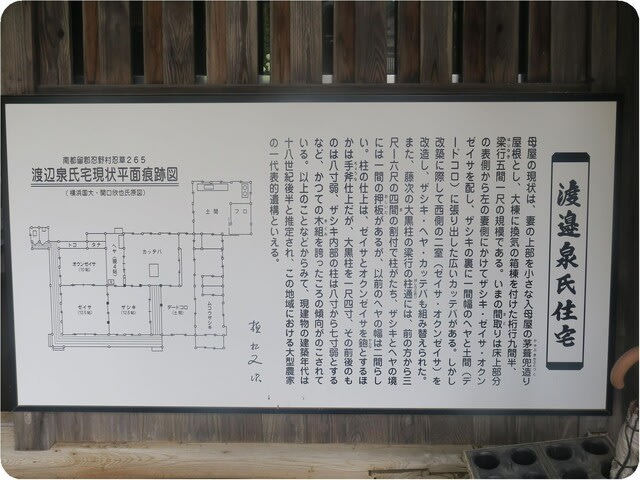 渡邉泉氏住宅
母屋の現状は、妻の上部を小さな入母屋の茅葺兜造り
屋根とし、大棟に換気の箱棟を付けた桁行九間半、
梁行五間一尺の規模である。いまの間取りは床上部分
の表側から左の妻側にかけてザシキ・セイザ・オクン
ゼイサを配し、ザシキの裏に一間幅のヘヤと土間(デ
ードコロ)に張り出した広いカッテバがある。しかし
改築に際して西側の二室(セイザ・オクンゼイサ)を
改造し、ザシキ・ヘヤ・カッテバも組み替えられた。
また、藤次の大黒柱の梁行の柱通には、前の方から三
尺ー六尺の四間の割付で柱がたち、ザシキとヘヤの境
には一間の押板があるが、以前のヘヤの幅は二間らし
い。柱の仕上は、ゼイサとオクンゼイサを鉋とするほ
かは手斧仕上だが、大黒柱を一尺四寸、その前後のも
のは八寸弱、ザシキ内部の柱は八寸から七寸弱とする
など、かつての木組を誇ったころの傾向がのこされて
いる。以上のことなどからみて、現建物の建築年代は
十八世紀後半と推定され、この地域における大型農家
の一代表的遺構といえる。
南都留郡忍野村忍草265
渡辺泉氏宅現状平面痕跡図
(横浜国大・関口欣也氏原図)
土間
フロ
トコ
タナ
ヘヤ
カッテバ
オクンゼイサ
(10帖)
ゼイサ
(12.5帖)
ザシキ
(12.5帖)
デードコロ
(土間)